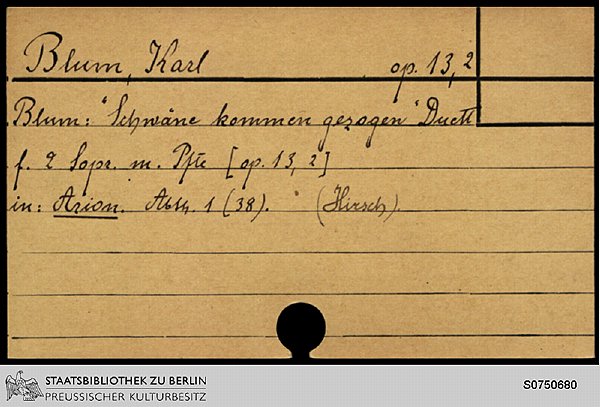 Blum, Karl op. 13,2
Blum: "Schwäne kommen gezogen" Duett
f. 2 Sopr. m. Pfte [op. 13, 2]
in: Arion. Abtg. 1 (38). (Hirsch).
STAATSBIBLIOTHEK ZU BERLIN
PREUSSISCHER KULTURBESITZ
S0750680